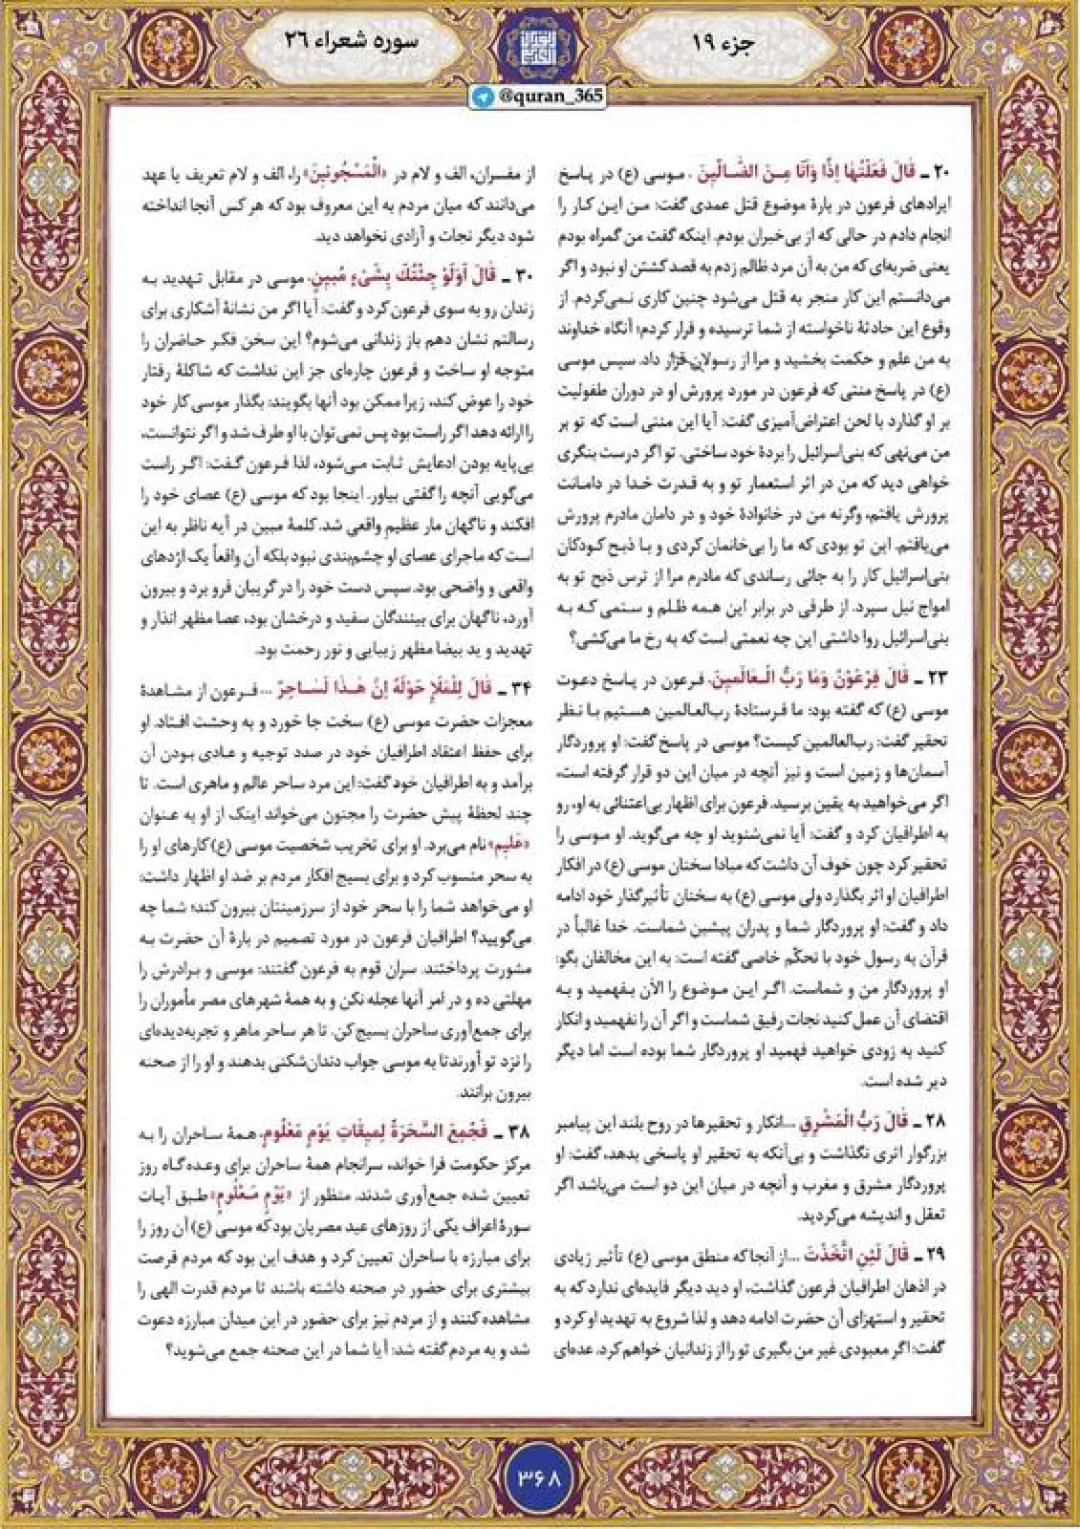 جزء ۱۹
سوره شعراء ۲۶
@quran_365
۲۰ ـ قَالَ فَعَلْتُهَا اِذًا وَاَنَا مِنَ الضَّالّينَ ، موسی (ع) در پاسخ
ایرادهای فرعون در بارهٔ موضوع قتل عمدی گفت: من این کار را
انجام دادم در حالی که از بی‌خبران بودم. اینکه گفت من گمراه بودم
یعنی ضربه‌ای که من به آن مرد ظالم زدم به قصد کشتن او نبود و اگر
می‌دانستم این کار منجر به قتل می‌شود چنین کاری نمی‌کردم. از
وقوع این حادثهٔ ناخواسته از شما ترسیده و فرار کردم؛ آنگاه خداوند
به من علم و حکمت بخشید و مرا از رسولان قرار داد. سپس موسی
(ع) در پاسخ منتی که فرعون در مورد پرورش او در دوران طفولیت
بر او گذارد با لحن اعتراض‌آمیزی گفت: آیا این منتی است که تو بر
من می‌نهی که بنی‌اسرائیل را بردهٔ خود ساختی. تو اگر درست بنگری
خواهی دید که من در اثر استعمار تو و به قدرت خدا در دامانت
پرورش یافتم، وگرنه من در خانوادهٔ خود و در دامان مادرم پرورش
می‌یافتم. این تو بودی که ما را بی‌خانمان کردی و با ذبح کودکان
بنی‌اسرائیل کار را به جائی رساندی که مادرم مرا از ترس ذبح تو به
امواج نیل سپرد. از طرفی در برابر این همه ظلم و ستمی که به
بنی‌اسرائیل روا داشتی این چه نعمتی است که به رخ ما می‌کشی؟
۲۳ ـ قَالَ فِرْعَوْنُ وَمَا رَبُّ الْعَالَمينَ، فرعون در پاسخ دعوت
موسی (ع) که گفته بود: ما فرستادهٔ رب‌العالمین هستیم با نظر
تحقیر گفت: رب‌العالمین کیست؟ موسی در پاسخ گفت: او پروردگار
آسمان‌ها و زمین است و نیز آنچه در میان این دو قرار گرفته است،
اگر می‌خواهید به یقین برسید. فرعون برای اظهار بی‌اعتنائی به او، رو
به اطرافیان کرد و گفت: آیا نمی‌شنوید او چه می‌گوید. او موسی را
تحقیر کرد چون خوف آن داشت که مبادا سخنان موسی (ع) در افکار
اطرافیان او اثر بگذارد ولی موسی (ع) به سخنان تأثیرگذار خود ادامه
داد و گفت: او پروردگار شما و پدران پیشین شماست. خدا غالباً در
قرآن به رسول خود با تحکّم خاصی گفته است: به این مخالفان بگو:
او پروردگار من و شماست. اگر این موضوع را الآن بفهمید و به
اقتضای آن عمل کنید نجات رفیق شماست و اگر آن را نفهمید و انکار
کنید به زودی خواهید فهمید او پروردگار شما بوده است اما دیگر
دیر شده است.
۲۸ ـ قَالَ رَبُّ الْمَشْرِقِ ...انکار و تحقیرها در روح بلند این پیامبر
بزرگوار اثری نگذاشت و بی‌آنکه به تحقیر او پاسخی بدهد، گفت: او
پروردگار مشرق و مغرب و آنچه در میان این دو است می‌باشد اگر
تعقل و اندیشه می‌کردید.
۲۹ ـ قَالَ لَئِنِ اتَّخَذْتَ ...از آنجا که منطق موسی (ع) تأثیر زیادی
در اذهان اطرافیان فرعون گذاشت، او دید دیگر فایده‌ای ندارد که به
تحقیر و استهزای آن حضرت ادامه دهد و لذا شروع به تهدید او کرد و
گفت: اگر معبودی غیر من بگیری تو را از زندانیان خواهم کرد. عده‌ای
از مفسران، الف و لام در «الْمَسْجُونينَ» را، الف و لام تعریف یا عهد
می‌دانند که میان مردم به این معروف بود که هر کس آنجا انداخته
شود دیگر نجات و آزادی نخواهد دید.
۳۰ ـ قَالَ اَوَلَوْ جِئْتُكَ بِشَىْءٍ مُبينٍ، موسی در مقابل تهدید به
زندان رو به سوی فرعون کرد و گفت: آیا اگر من نشانهٔ آشکاری برای
رسالتم نشان دهم باز زندانی می‌شوم؟ این سخن فکر حاضران را
متوجه او ساخت و فرعون چاره‌ای جز این نداشت که شاکلهٔ رفتار
خود را عوض کند، زیرا ممکن بود آنها بگویند: بگذار موسی کار خود
را ارائه دهد اگر راست بود پس نمی‌توان با او طرف شد و اگر نتوانست،
بی‌پایه بودن ادعایش ثابت می‌شود، لذا فرعون گفت: اگر راست
می‌گویی آنچه را گفتی بیاور. اینجا بود که موسی (ع) عصای خود را
افکند و ناگهان مار عظیم واقعی شد. کلمهٔ مبین در آیه ناظر به این
است که ماجرای عصای او چشم‌بندی نبود بلکه آن واقعاً یک اژدهای
واقعی و واضحی بود. سپس دست خود را در گریبان فرو برد و بیرون
آورد، ناگهان برای بینندگان سفید و درخشان بود، عصا مظهر انذار و
تهدید و ید بیضا مظهر زیبایی و نور رحمت بود.
۳۴ ـ قَالَ لِلْمَلَإِ حَوْلَهُ اِنَّ هٰذَا لَسَاحِرٌ ...فرعون از مشاهدهٔ
معجزات حضرت موسی (ع) سخت جا خورد و به وحشت افتاد. او
برای حفظ اعتقاد اطرافیان خود در صدد توجیه و عادی بودن آن
برآمد و به اطرافیان خود گفت: این مرد ساحر عالم و ماهری است. تا
چند لحظهٔ پیش حضرت را مجنون می‌خواند اینک از او به عنوان
«عَليم» نام می‌برد. او برای تخریب شخصیت موسی (ع) کارهای او را
به سحر منسوب کرد و برای بسیج افکار مردم بر ضد او اظهار داشت:
او می‌خواهد شما را با سحر خود از سرزمینتان بیرون کند؛ شما چه
می‌گویید؟ اطرافیان فرعون در مورد تصمیم در بارهٔ آن حضرت به
مشورت پرداختند. سران قوم به فرعون گفتند: موسی و برادرش را
مهلتی ده و در امر آنها عجله نکن و به همهٔ شهرهای مصر مأموران را
برای جمع‌آوری ساحران بسیج کن. تا هر ساحر ماهر و تجربه‌دیده‌ای
را نزد تو آورند تا به موسی جواب دندان‌شکنی بدهند و او را از صحنه
بیرون برانند.
۳۸ ـ فَجُمِعَ السَّحَرَةُ لِميقَاتِ يَوْمٍ مَعْلُومٍ، همهٔ ساحران را به
مرکز حکومت فرا خواند، سرانجام همهٔ ساحران برای وعده‌گاه روز
تعیین شده جمع‌آوری شدند. منظور از «يَوْمٍ مَعْلُومٍ» طبق آیات
سورهٔ اعراف یکی از روزهای عید مصریان بود که موسی (ع) آن روز را
برای مبارزه با ساحران تعیین کرد و هدف این بود که مردم فرصت
بیشتری برای حضور در صحنه داشته باشند تا مردم قدرت الهی را
مشاهده کنند و از مردم نیز برای حضور در این میدان مبارزه دعوت
شد و به مردم گفته شد: آیا شما در این صحنه جمع می‌شوید؟
۳۶۸